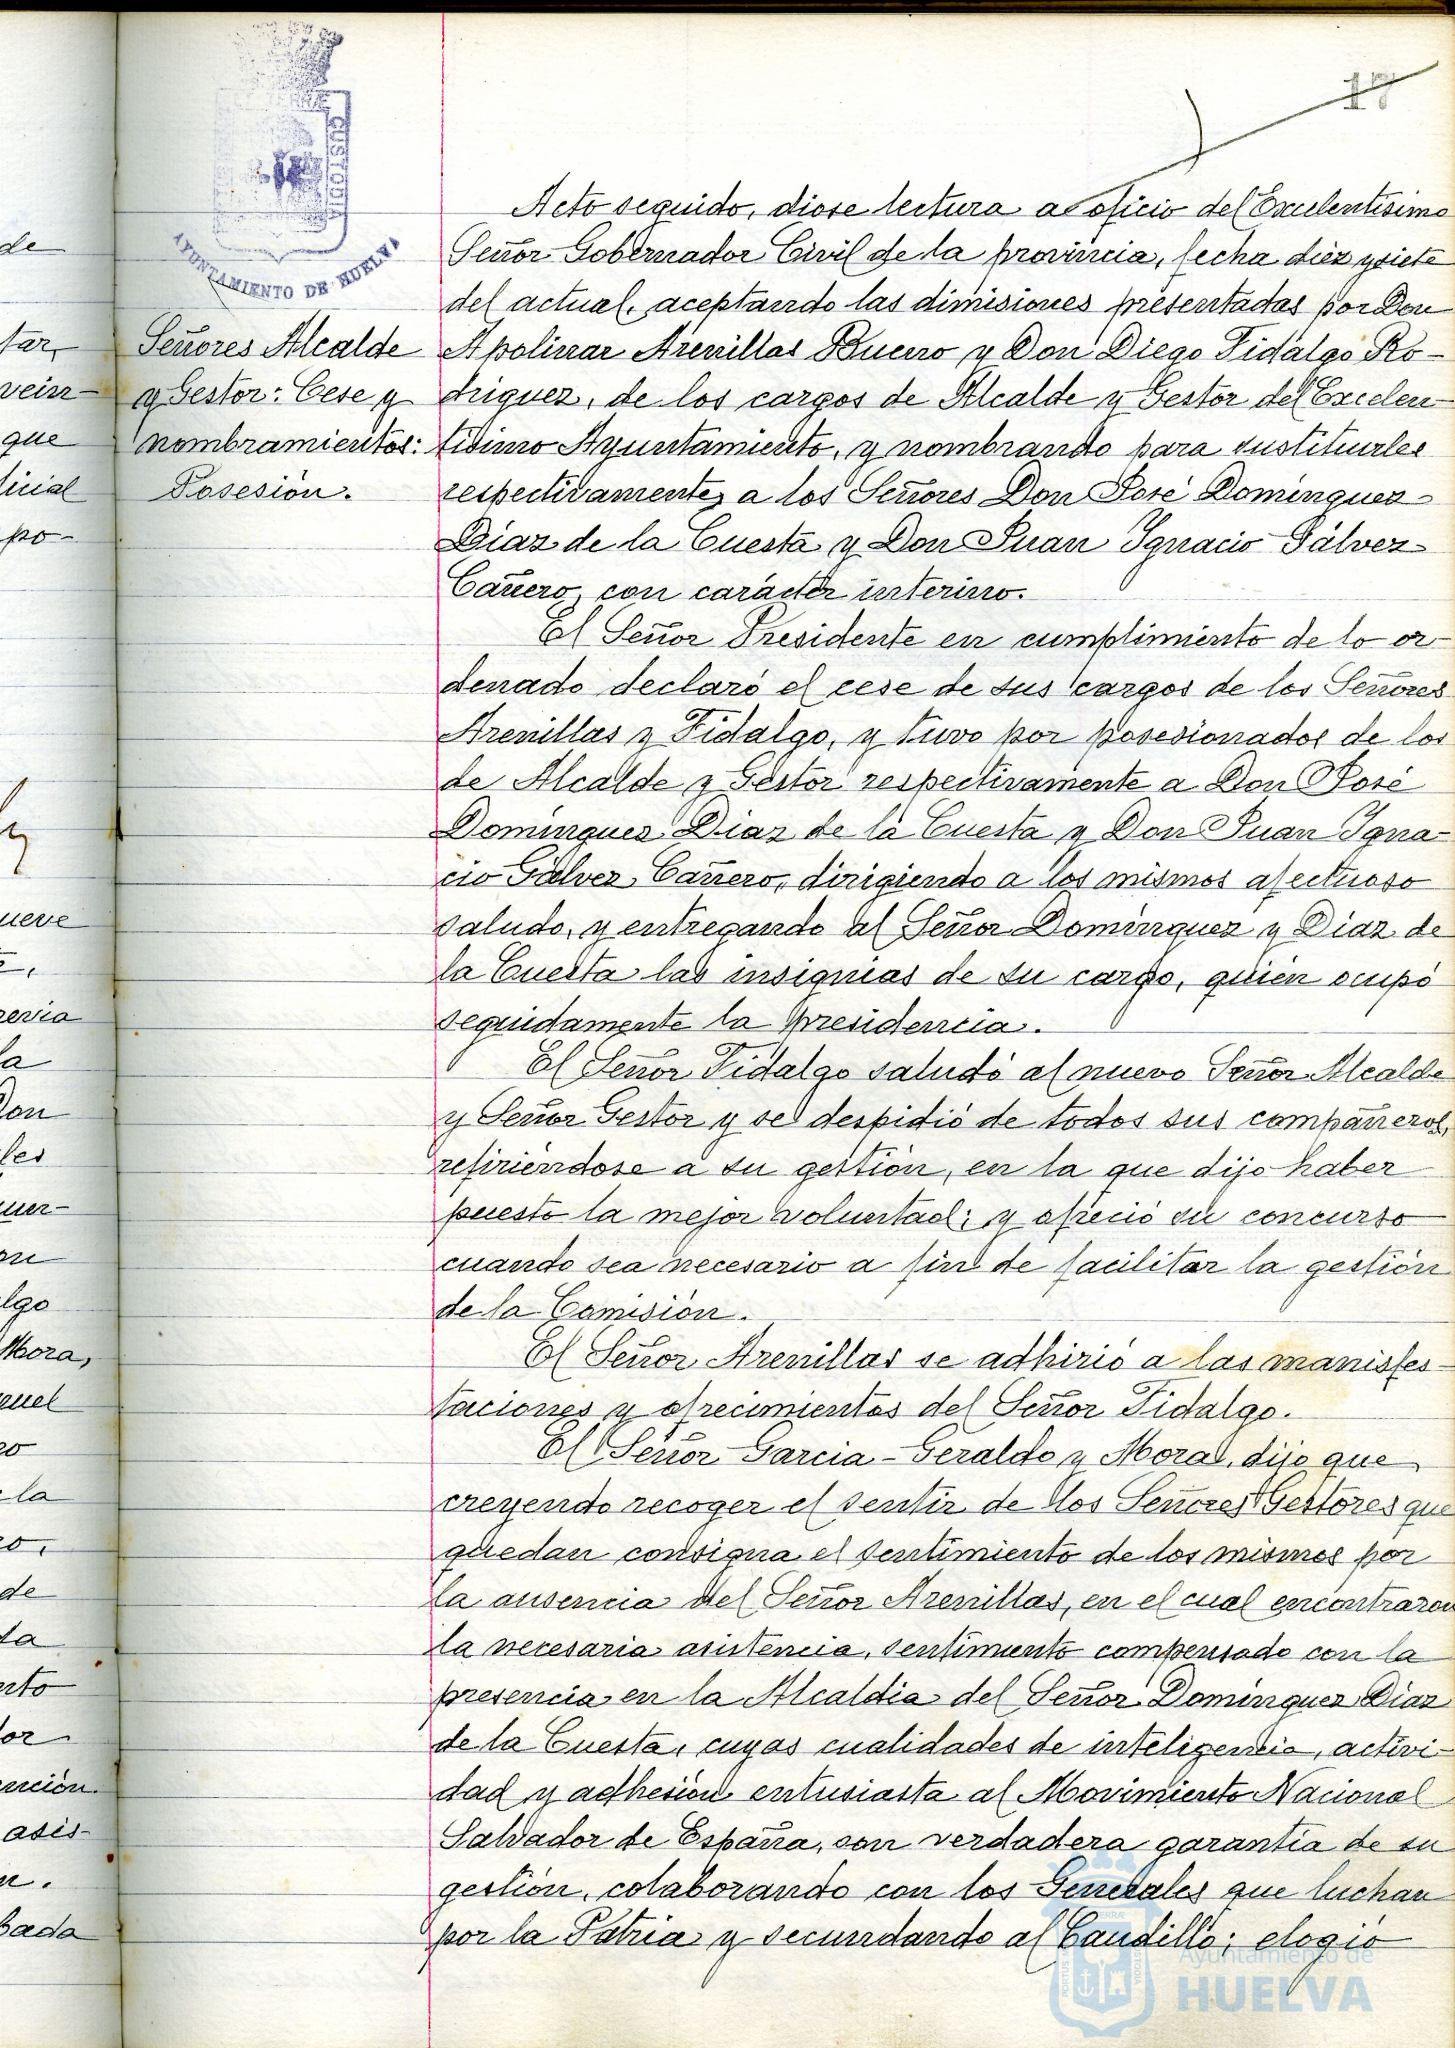 17
TERRÆ
CUSTODIA
AYUNTAMIENTO DE HUELVA
Señores Alcalde
y Gestor: Cese y
nombramientos:
Posesión.
Acto seguido, diose lectura a oficio del Excelentísimo
Señor Gobernador Civil de la provincia, fecha diez y siete
del actual, aceptando las dimisiones presentadas por Don
Apolinar Arenillas Bueno y Don Diego Fidalgo Ro-
driguez, de los cargos de Alcalde y Gestor del Excelen-
tísimo Ayuntamiento, y nombrando para sustituirles
respectivamente, a los Señores Don José Dominguez
Díaz de la Cuesta y Don Juan Ignacio Gálvez
Cañero, con carácter interino.
El Señor Presidente en cumplimiento de lo or-
denado declaró el cese de sus cargos de los Señores
Arenillas y Fidalgo, y tuvo por posesionados de los
de Alcalde y Gestor respectivamente a Don José
Dominguez Diaz de la Cuesta y Don Juan Igna-
cio Gálvez Cañero, dirigiendo a los mismos afectuoso
saludo, y entregando al Señor Domínguez y Díaz de
la Cuesta las insignias de su cargo, quién ocupó
seguidamente la presidencia.
El Señor Fidalgo saludó al nuevo Señor Alcalde
y Señor Gestor y se despidió de todos sus compañeros,
refiriéndose a su gestión, en la que dijo haber
puesto la mejor voluntad; y ofreció su concurso
cuando sea necesario a fin de facilitar la gestión
de la Comisión.
El Señor Arenillas se adhirió a las manisfes-
taciones y ofrecimientos del Señor Fidalgo.
El Señor Garcia-Geraldo y Mora, dijo que
creyendo recoger el sentir de los Señores Gestores que
quedan consigna el sentimiento de los mismos por
la ausencia del Señor Arenillas, en el cual encontraron
la necesaria asistencia, sentimiento compensado con la
presencia en la Alcaldia del Señor Domínguez Diaz
de la Cuesta, cuyas cualidades de inteligencia, activi-
dad y adhesión entusiasta al Movimiento Nacional
Salvador de España, son verdadera garantia de su
gestión, colaborando con los Generales que luchan
por la Patria y secundando al Caudillo; elogió
Ayuntamiento de
HUELVA